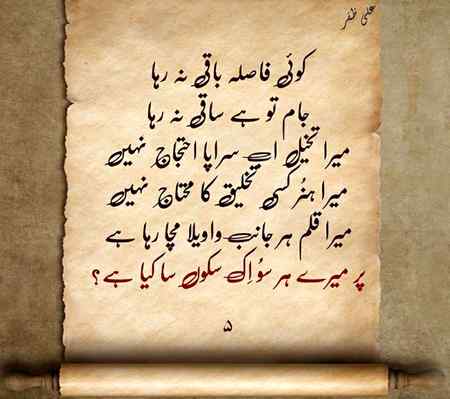 علی ظفر
کوئی فاصلہ باقی نہ رہا
جام تو ہے ساقی نہ رہا
میرا تخیل اب سراپا احتجاج نہیں
میرا ہنُر کسی تخلیق کا محتاج نہیں
میرا قلم ہر جانب واویلا مچا رہا ہے
پر میرے ہر سُو اِک سکوں سا کیا ہے؟
۵